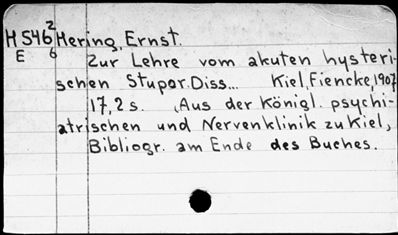 H 546² Hering, Ernst.
E 6
Zur Lehre vom akuten hysteri-
schen Stupor. Diss... Kiel, Fiencke, 1907
17, 2 s. (Aus der Königl. psychi-
atrischen und Nervenklinik zu Kiel,
Bibliogr. am Ende des Buches.